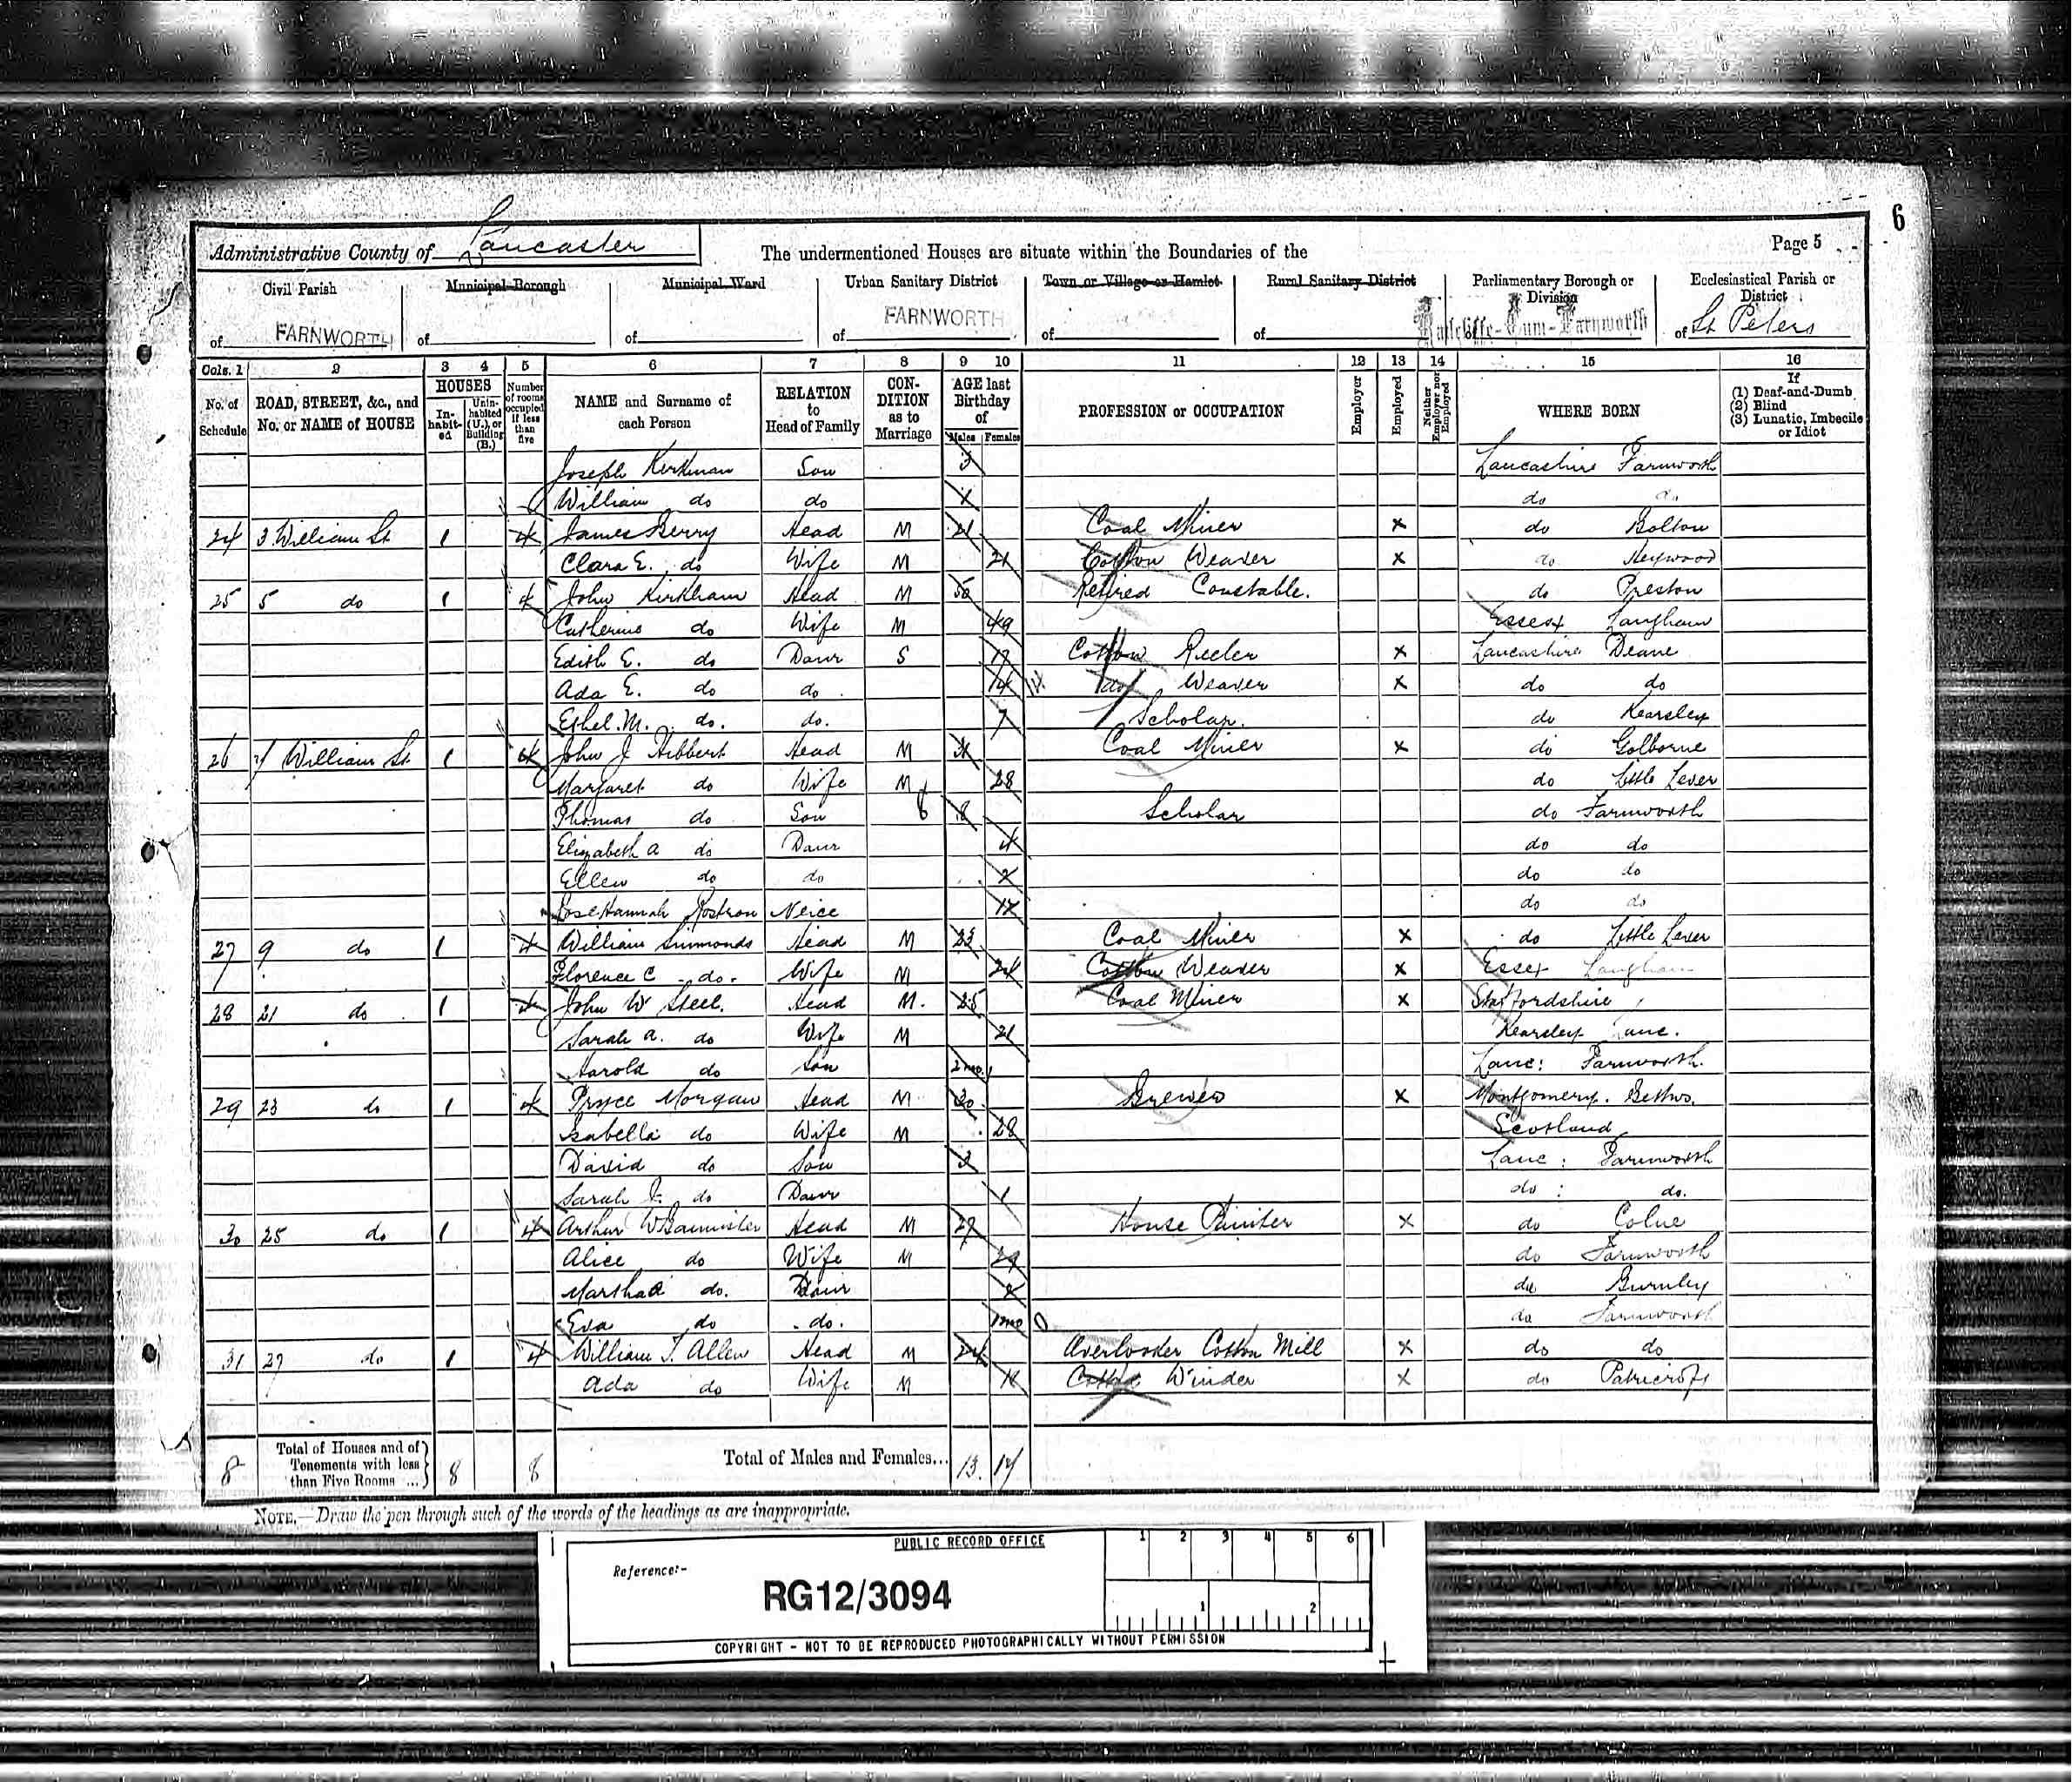 6
Administrative County of Lancaster The undermentioned Houses are situate within the Boundaries of the Page 5
Civil Parish of FARNWORTH Municipal Borough of Municipal Ward of Urban Sanitary District of FARNWORTH Town or Village or Hamlet of Rural Sanitary District of Parliamentary Borough or Division of Radcliffe-Cum-Farnworth Ecclesiastical Parish or District of St Peters
Cols. 1 2 3 4 5 6 7 8 9 10 11 12 13 14 15 16
No. of Schedule ROAD, STREET, &c., and No. or NAME of HOUSE HOUSES In-habit-ed Unin-habited (U.), or Building (B.) Number of rooms occupied if less than five NAME and Surname of each Person RELATION to Head of Family CON-DITION as to Marriage AGE last Birthday of Males Females PROFESSION or OCCUPATION Employer Employed Neither Employer nor Employed WHERE BORN If (1) Deaf-and-Dumb (2) Blind (3) Lunatic, Imbecile or Idiot
Joseph Kirkman Son 3 Lancashire Farnworth
William do do 1 do do
24 3 William St 1 4 James Berry Head M 21 Coal Miner X do Bolton
Clara E. do Wife M 21 Cotton Weaver X do Heywood
25 5 do 1 4 John Kirkham Head M 50 Retired Constable. do Preston
Catherine do Wife M 49 Essex Langham
Edith E. do Daur S 17 Cotton Reeler X Lancashire Deane
Ada E. do do 14 14 do Weaver X do do
Ethel M. do. do. 7 Scholar. do Kearsley
26 7 William St 1 4 John J Hibbert Head M 31 Coal Miner X do Golborne
Margaret do Wife M 28 do Little Lever
Thomas do Son 8 Scholar do Farnworth
Elizabeth A do Daur 4 do do
Ellen do do 2 do do
Rose Hannah Rostron Neice do do
27 9 do 1 4 William Simmonds Head M 23 Coal Miner X do Little Lever
Florence C do. Wife M 24 Cotton Weaver X Essex Langham
28 21 do 1 4 John W Steel. Head M. 25 Coal Miner X Staffordshire
Sarah A. do Wife M 21 Kearsley Lanc.
Harold do Son 2mo. Lanc: Farnworth.
29 23 do 1 4 Pryce Morgan Head M 30 Brewer X Montgomery. Bettws.
Isabella do Wife M 28 Scotland
David do Son 3 Lanc: Farnworth
Sarah J. do Daur 1 do: do.
30 25 do 1 4 Arthur W Bannister Head M 27 House Painter X do Colne
Alice do Wife M 29 do Farnworth
Martha A do. Daur 2 do Burnley
Eva do do. 1mo 0 do Farnworth
31 27 do 1 4 William T. Allen Head M 24 Overlooker Cotton Mill X do do
Ada do Wife M Cotton Winder X do Patricroft
8 Total of Houses and of Tenements with less than Five Rooms ... 8 8 Total of Males and Females... 13 17
NOTE.—Draw the pen through such of the words of the headings as are inappropriate.
PUBLIC RECORD OFFICE
1 2 3 4 5 6
Reference:-
RG12/3094
1 2
COPYRIGHT - NOT TO BE REPRODUCED PHOTOGRAPHICALLY WITHOUT PERMISSION